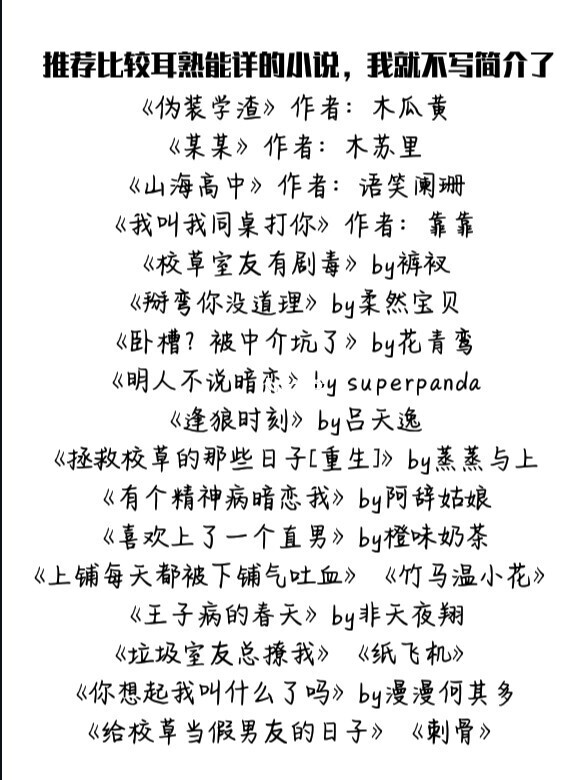 推荐比较耳熟能详的小说，我就不写简介了
《伪装学渣》作者：木瓜黄
《某某》作者：木苏里
《山海高中》作者：语笑阑珊
《我叫我同桌打你》作者：靠靠
《校草室友有剧毒》by裤衩
《掰弯你没道理》by柔然宝贝
《卧槽？被中介坑了》by花青鸾
《明人不说暗恋》by superpanda
《逢狼时刻》by吕天逸
《拯救校草的那些日子[重生]》by蒸蒸与上
《有个精神病暗恋我》by阿辞姑娘
《喜欢上了一个直男》by橙味奶茶
《上铺每天都被下铺气吐血》《竹马温小花》
《王子病的春天》by非天夜翔
《垃圾室友总撩我》《纸飞机》
《你想起我叫什么了吗》by漫漫何其多
《给校草当假男友的日子》《刺骨》